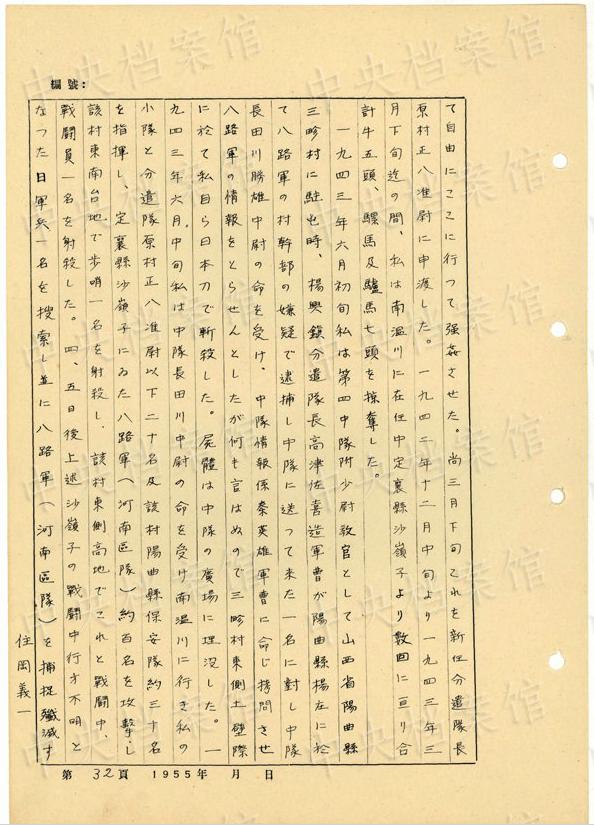 編號：
て自由にここに行つて强姦させた。尚三月下旬これを新任分遣隊長
原村正八准尉に申渡した。一九四二年十二月中旬より一九四三年三
月下旬迄の間、私は南温川に在任中定襄縣沙嶺子より数回に亘り合
計牛五頭、騾馬及驢馬七頭を掠奪した。
一九四三年六月初旬私は第四中隊附少尉敎官として山西省陽曲縣
三畛村に駐屯時、楊興鎭分遣隊長高津佐喜造軍曹が陽曲縣楊庄に於
て八路軍の村幹部の嫌疑で逮捕し中隊に送つて来た一名に對し中隊
長田川勝雄中尉の命を受け、中隊情報係秦英雄軍曹に命じ拷問させ
八路軍の情報をとらせんとしたが何も言はぬので三畛村東側土壁際
に於て私自ら日本刀で斬殺した。屍體は中隊の廣場に埋没した。一
九四三年六月中旬私は中隊長田川中尉の命を受け南温川に行き私の
小隊と分遣隊原村正八准尉以下二十名及該村陽曲縣保安隊約三十名
を指揮し、定襄縣沙嶺子にゐた八路軍（河南區隊）約百名を攻擊し
該村東南台地で步哨一名を射殺し、該村東側高地でこれと戰鬪中、
戰鬪員一名を射殺した。四、五日後上述沙嶺子の戰鬪中行方不明と
なつた日軍兵一名を搜索し並に八路軍（河南區隊）を捕捉殲滅す
住岡義一
第 32 頁 1955年 月 日
中央档案馆